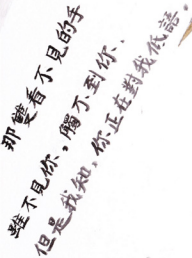 那雙看不見的手
雖不見你，觸不到你、
但是我知，你正在對我低語